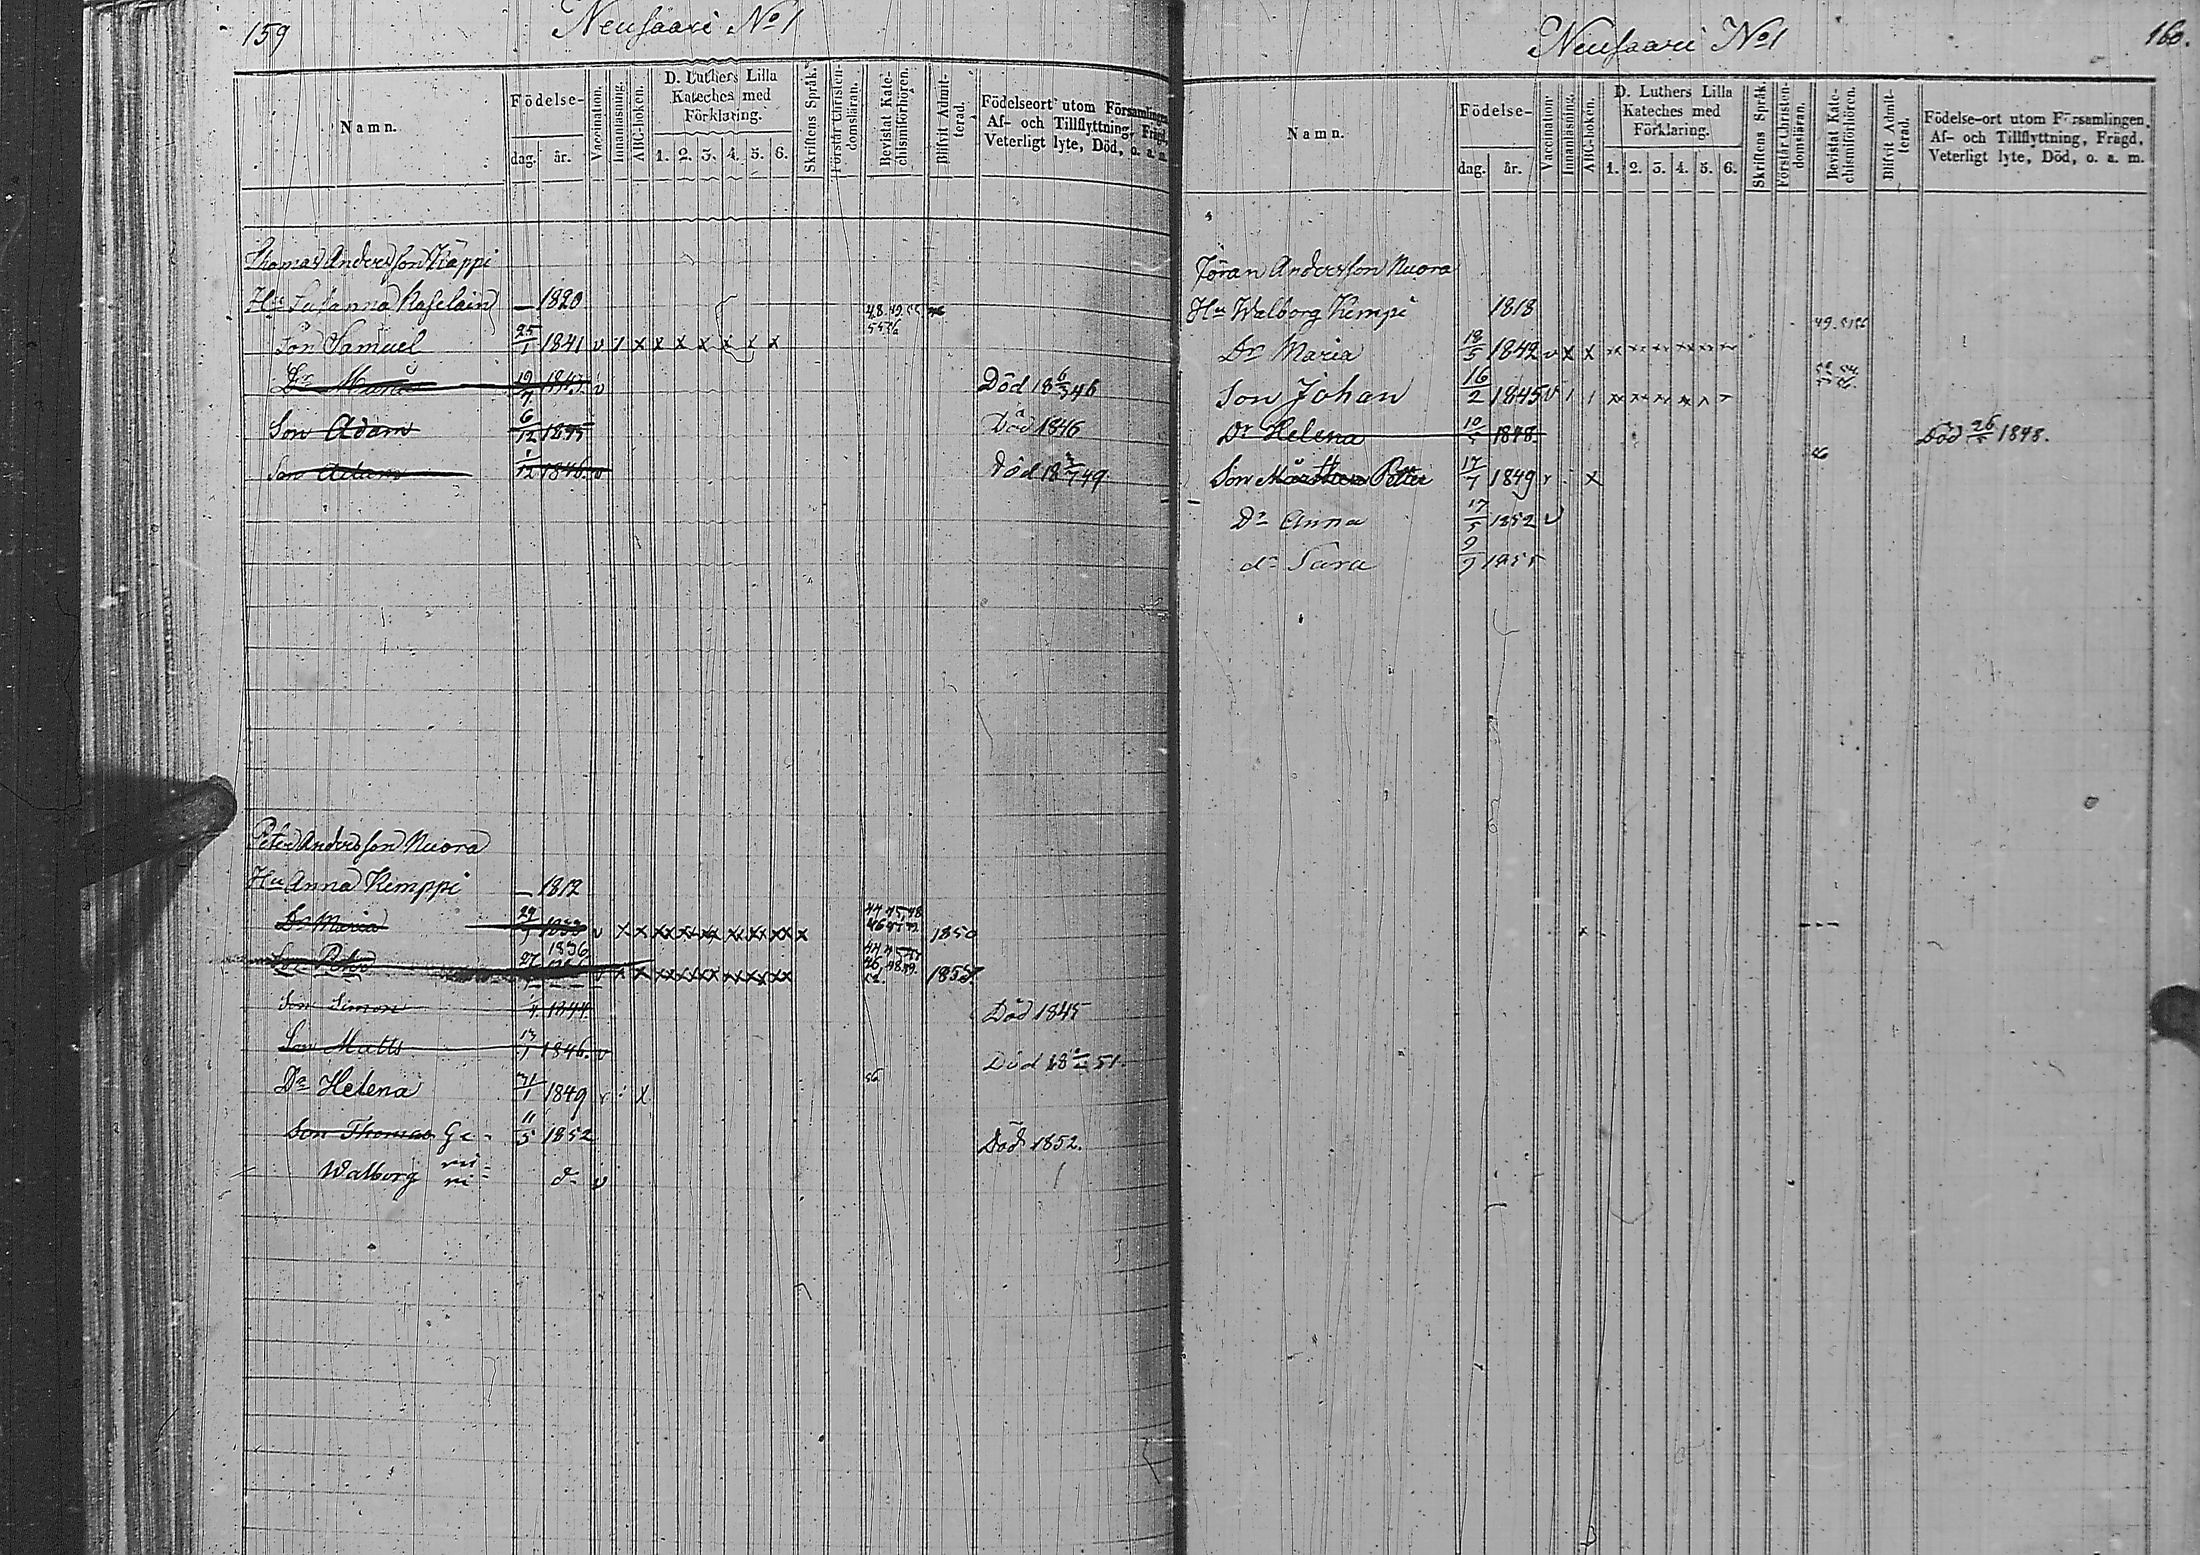 159
Neusaari No 1
Namn.
Födelse-
dag. år.
Vaccination.
Innanläsning.
ABC-boken.
D. Luthers Lilla
Kateches med
Förklaring.
1. 2. 3. 4. 5. 6.
Skriftens Språk.
Förstår Christen-
domsläran.
Bevistat Kate-
chismiförhören.
Blifvit Admit-
terad.
Födelseort utom Församlingen,
Af- och Tillflyttning, Frägd,
Veterligt lyte, Död, o. a. m.
Thomas Andersson Käppi
Hu Susanna Kaselain — 1820
Son Samuel 25/1 1841 v 1 x x x x x x x
Dr Maria 19/7 1843 v Död 18 6/3 46
Son Adam 6/12 1845 Död 1846
Son Adam 1/12 1846 v Död 18 3/7 49
Peter Andersson Nuora
Hu Anna Kemppi — 1812
Dr Maria 29 v x x xx xx xx xx xx xx x 1850
Son Petter 27 1836 x x xx xx xx xx xx xx
Son Simon 1/4 1844 Död 1845
Son Matts 13/1 1846. v Död 51.
Dr Helena 31/1 1849 x 56
Son Thomas Ge- 11/5 1852 Död 1852.
Walborg mi- ni do v
Neusaari No 1
160.
Namn.
Födelse-
dag. år.
Vaccination.
Innanläsning.
ABC-boken.
D. Luthers Lilla
Kateches med
Förklaring.
1. 2. 3. 4. 5. 6.
Skriftens Språk.
Förstår Christen-
domsläran.
Bevistat Kate-
chismiförhören.
Blifvit Admit-
terad.
Födelse-ort utom Församlingen,
Af- och Tillflyttning, Frägd,
Veterligt lyte, Död, o. a. m.
Jöran Andersson Nuora
Hu Walborg Kempi 1818
Dr Maria 18/5 1842 v x x
Son Johan 16/2 1845 v 1 1
Dr Helena 10/5 1848 Död 26/5 1848.
Son Mårthen Petter 17/7 1849 x
Dr Anna 17/5 1852 v
dr Sara 9/9 1855